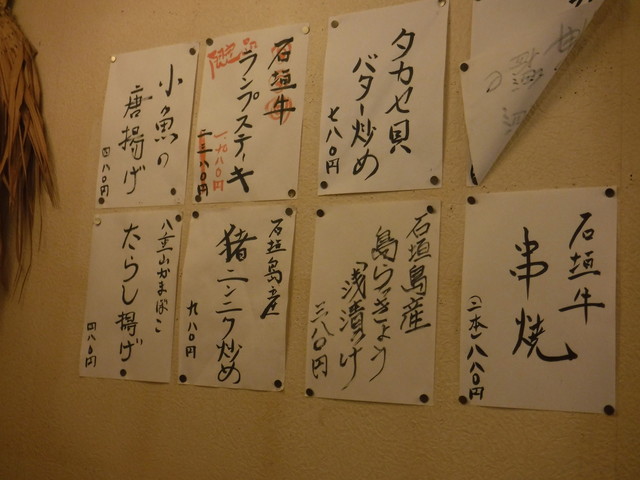 タカセ貝
バター炒め
七八〇円
石垣牛
ランプステーキ
一九八〇
小魚の
唐揚げ
四八〇円
石垣牛
串焼
(二本)八八〇円
石垣島産
島らっきょう
「浅漬け
三八〇円
石垣島産
猪ニンニク炒め
九八〇円
八重山かまぼこ
たらし揚げ
四八〇円